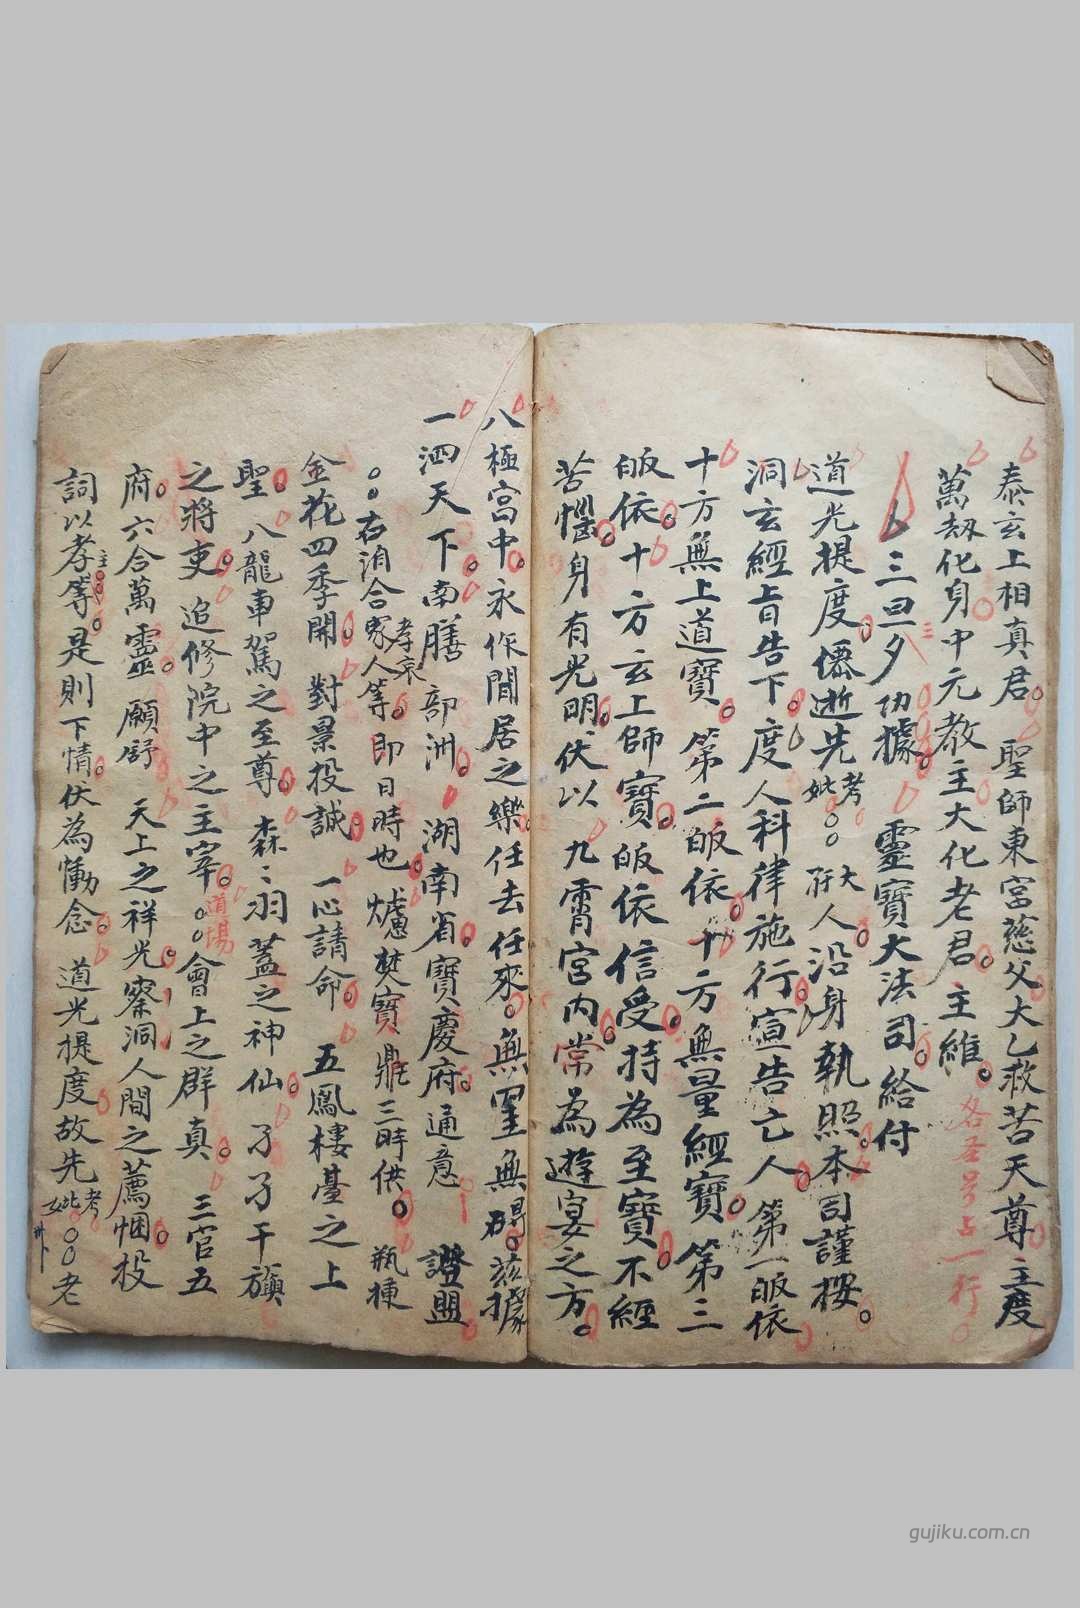 泰玄上相真君。聖師東宮慈父大乙救苦天尊主度
萬劫化身中元教主大化老君。主維。各圣号占一行
三囬夕功據。靈寶大法司。給付
道光提度。僊逝先考妣○○大人沿身執照本司謹按。
洞玄經旨告下度人科律施行。宣告亡人第一皈依
十方無上道寶。第二皈依。十方無量經寶。第三
皈依。十方玄上師寶。皈依信受。持為至寶。不經
苦惱。身有光明。伏以九霄宮内常為遊宴之方。
八極宮中。永作閒居之樂。任去任來。無罣無碍。茲據
一泗天下。南膳部洲。湖南省。寶慶府。通意 證盟
○○右洎合家孝眷人等。即日時也爐焚寶鼎三時供。瓶插
金花四季開。對景投誠 一心請命。五鳳樓臺之上
聖。八龍車駕之至尊。森〻羽蓋之神仙。孑孑干旟
之將吏。追修院中之主宰。○○道場會上之群真。三官五
府。六合萬靈。願舒 天上之祥光察洞人間之薦悃。投
詞以孝等主○○。是則下情。伏為慟念。道光提度故先考妣○○老
gujiku.com.cn